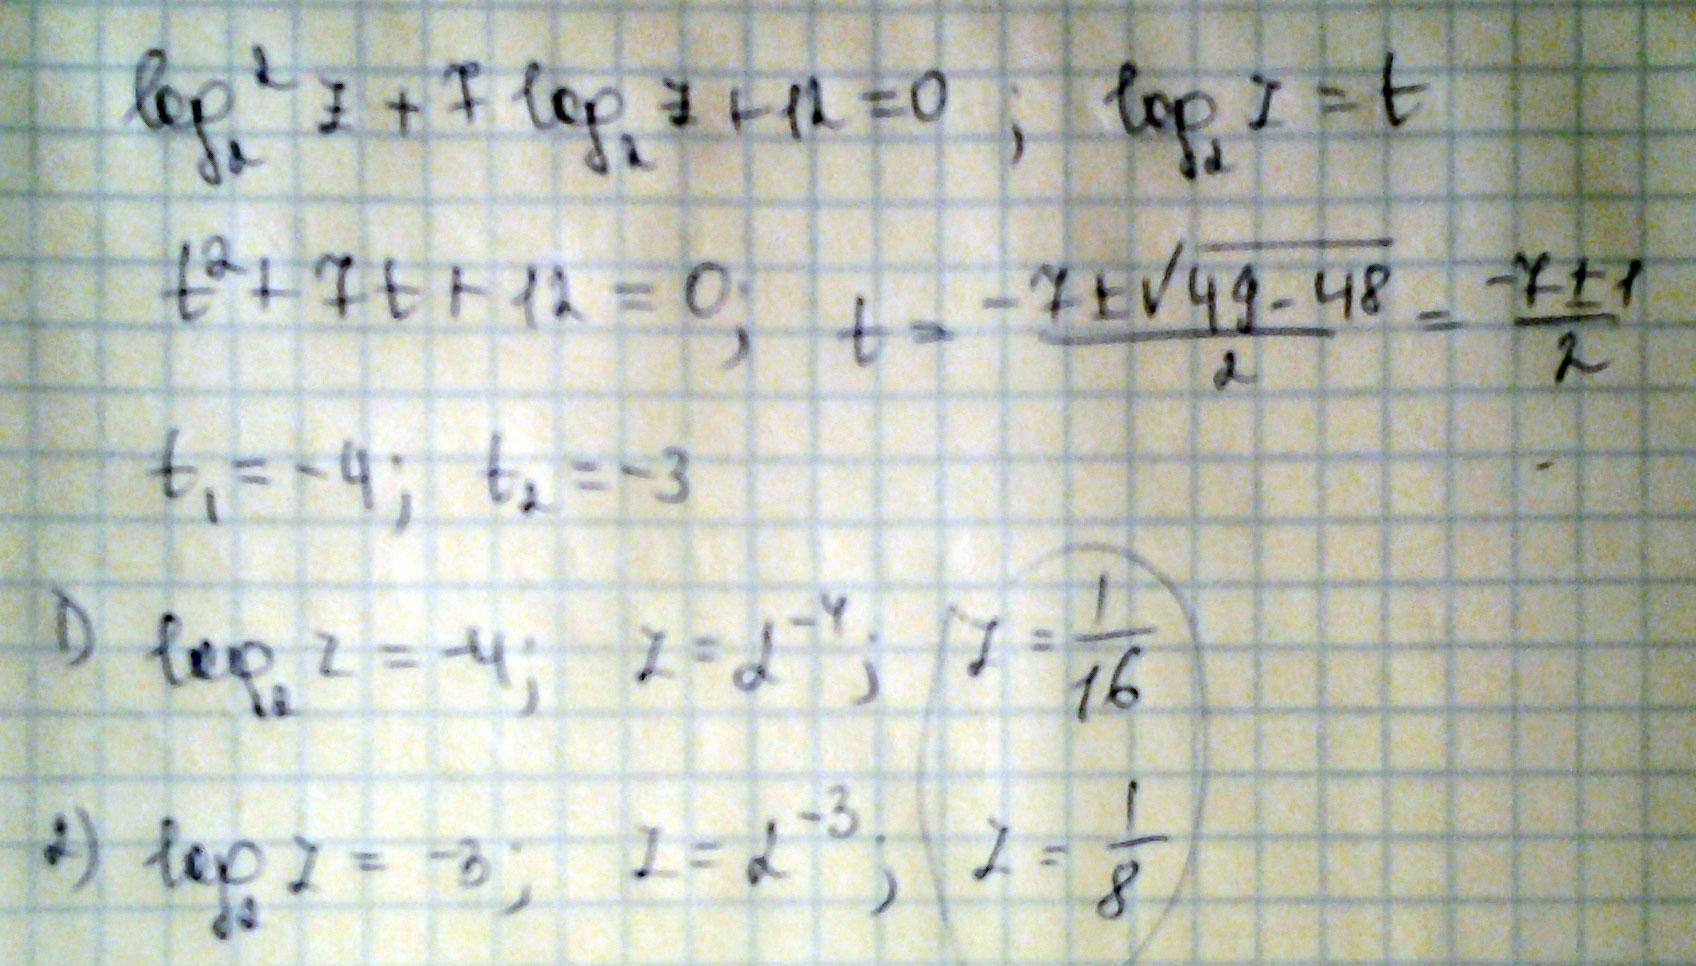 log₂² z + 7 log₂ z + 12 = 0 ; log₂ z = t
t² + 7t + 12 = 0; t = (-7 ± √(49 - 48))/2 = (-7 ± 1)/2
t₁ = -4; t₂ = -3
1) log₂ z = -4; z = 2⁻⁴; z = 1/16
2) log₂ z = -3; z = 2⁻³; z = 1/8